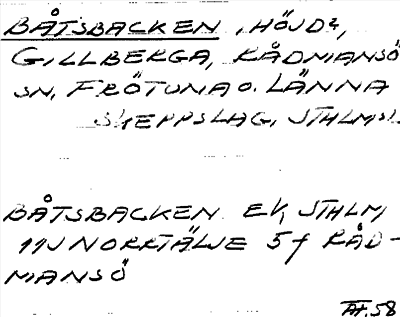 BÅTSBACKEN, HÖJD?,
GILLBERGA, RÅDMANSÖ
SN, FRÖTUNA O. LÄNNA
SKEPPSLAG, STHLMS L
BÅTSBACKEN EK, STHLM
11J NORRTÄLJE 5f RÅD-
MANSÖ